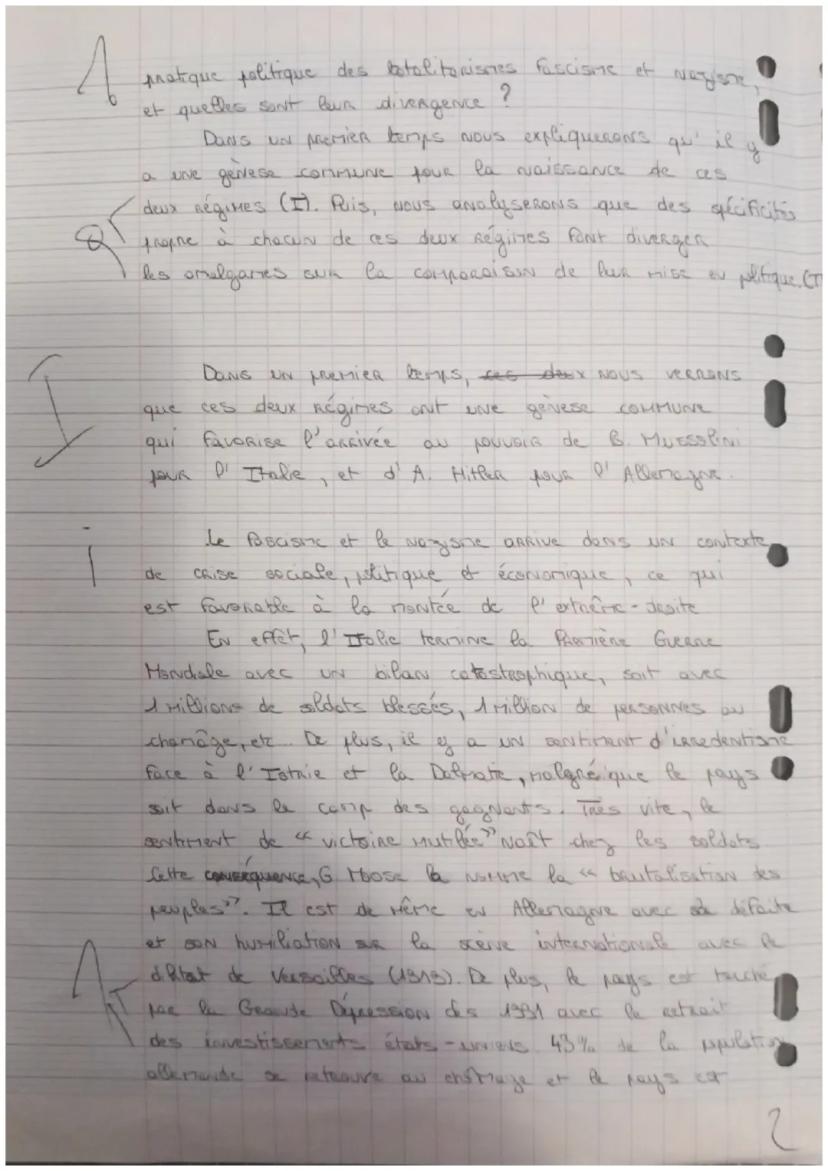 pratique politique des totalitarismes fascisme et nazisme,
et quelles sont leur divergence ?
Dans un premier temps nous expliquerons qu'il y
a une génèse commune pour la naissance de ces
deux régimes (I). Puis, nous analyserons que des spécificités
propre à chacun de ces deux régimes font diverger
les amalgames sur la comparaison de leur mise en politique.
I
Dans un premier temps, nous verrons
que ces deux régimes ont une génèse commune
qui favorise l'arrivée au pouvoir de B. Mussolini
pour l'Italie, et d'A. Hitler pour l'Allemagne.
i
Le fascisme et le nazisme arrive dans un contexte
de crise sociale, politique et économique, ce qui
est favorable à la montée de l'extrême-droite
En effet, l'Italie termine la Première Guerre
Mondiale avec un bilan catastrophique, soit avec
1 millions de soldats blessés, 1 million de personnes au
chomâge, etc... De plus, il y a un sentiment d'irredentisme
face à l'Istrie et la Dalmatie, malgré que le pays
soit dans le camp des gagnants. Très vite, le
sentiment de "victoire mutilée" naît chez les soldats
Cette conséquence, G Mosse la nomme la "brutalisation des
peuples". Il est de même en Allemagne avec sa défaite
et son humiliation sur la scène internationale avec le
diktat de Versailles (1919). De plus, le pays est touché
par la Grande Dépression dès 1931 avec le retrait
des investissements états-uniens. 43% de la population
allemande se retrouve au chômage et le pays est
2